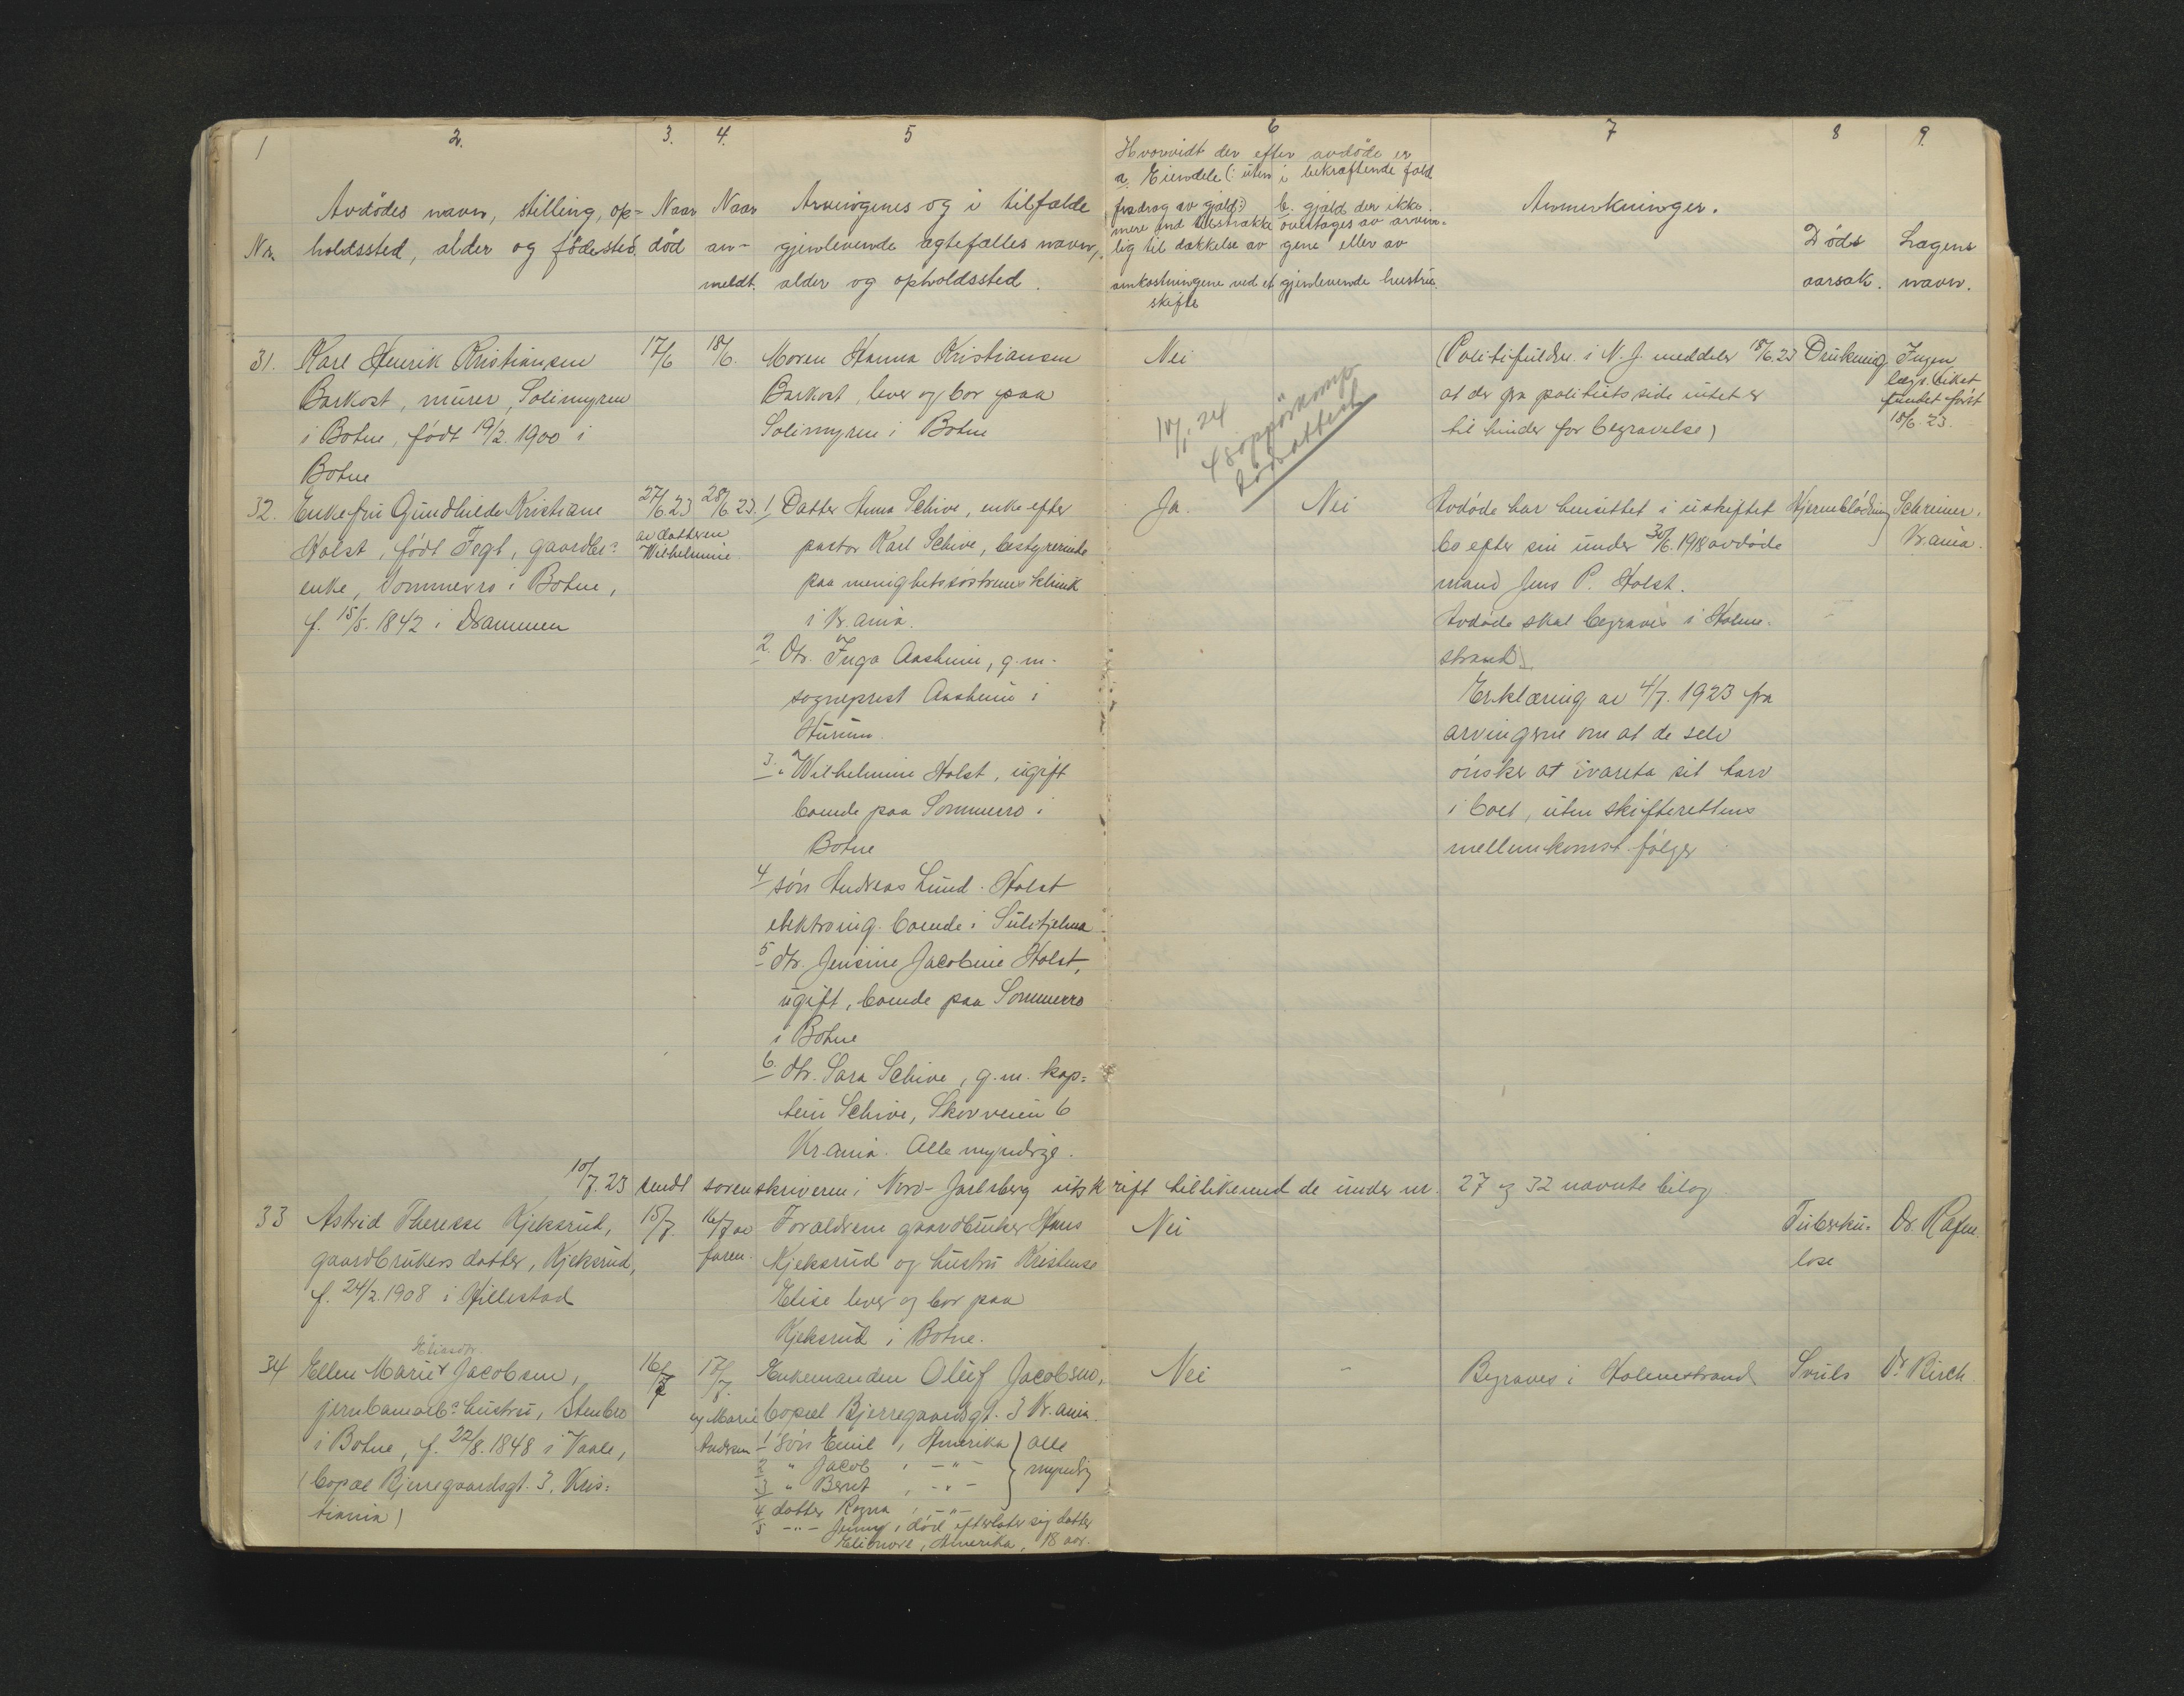 1 2. 3. 4. 5 6 7 8 9.
Nr.
Avdödes navn, stilling, op-
holdssted, alder og födested.
Naar
död
Naar
an-
meldt.
Arvingenes og i tilfælde
gjenlevende ægtefælles navn,
alder og opholdssted.
Hvorvidt der efter avdöde er
a. Eiendele (: uten i bekræftende fald
fradrag av gjæld:)
mere end tilstrække
lig til dækkelse av
omkostningene ved et
skifte
b. gjæld der ikke
overtages av arvin-
gene eller av
gjenlevende hustru.
Anmerkninger.
Döds
aarsak.
Lægens
navn.
31.
Karl Henrik Kristiansen
Barkost, murer, Solimyren
i Botne, født 19/2. 1900 i
Botne
17/6
18/6.
Moren Hanna Kristiansen
Barkost, lever og bor paa
Solimyren i Botne
Nei
(Politifuldm. i N. J. meddeler 18/6.23
at der fra politiets side intet er
til hinder for begravelse)
Drukning
Ingen
læge. Liket
fundet først
18/6. 23.
32.
Enkefru Gundhilde Kristiane
Holst, født Fegt, gaardbr.
enke, Sommerro i Botne,
f. 15/5. 1842 i Drammen
27/6 23
28/6 23.
av datteren
Wilhelmine
1. Datter Anna Schive, enke efter
pastor Karl Schive, bestyrerinde
paa menighetssøstrenes klinik
i Kr.ania.
2. Dtr. Inga Aasheim, g.m.
sogneprest Aasheim i
Hurum.
3. " Wilhelmine Holst, ugift
boende paa Sommerro i
Botne
4 søn Andreas Lund Holst
elektroing. boende i Sulitjelma
5 dtr. Jensine Jacobine Holst,
ugift, boende paa Sommerro
i Botne
6. dtr. Sara Schive, g.m. kap-
tein Schive, Skovveien 6
Kr.ania. Alle myndige.
Ja.
Nei
Avdøde har hensittet i uskiftet
bo efter sin under 30/6. 1918 avdøde
mand Jens P. Holst.
Avdøde skal begraves i Holme-
strand.
Erklæring av 4/7. 1923 fra
arvingerne om at de selv
ønsker at ivareta sit tarv
i boet, uten skifterettens
mellemkomst følger
Hjerneblødning
Schreiner.
Kr.ania.
10/7.23 sendt sorenskriveren i Nord-Jarlsberg utskrift tillikemed de under nr. 27 og 32 nævnte bilag
33
Astrid Therese Kjeksrud,
gaardbrukers datter, Kjeksrud,
f. 24/2. 1908 i Hillestad
15/7.
16/7 av
faren.
Forældrene gaardbruker Hans
Kjeksrud og hustru Kristense
Elise lever og bor paa
Kjeksrud i Botne.
Nei
Tuberku-
lose
Dr. Rafen.
34
Ellen Marie Jacobsen,
jernbanearb. hustru, Stenbro
i Botne, f. 22/8. 1848 i Vaale,
(bopæl Bjerregaardsgt. 3, Kris-
tiania)
16/7
17/7.
av Marie
Andersen
Enkemanden Oluf Jacobsen,
bopæl Bjerregaardsgt. 3 Kr.ania.
1 søn Emil, Amerika } alle
2 " Jacob, - " - } myndig
3 " Bernt, - " -
4 datter Ragna, - " -
5 - " - Jenny, død, efterlater sig datter
Elionore, Amerika, 18 aar.
Nei
-
Begraves i Holmestrand
Svuls
Dr. Birch